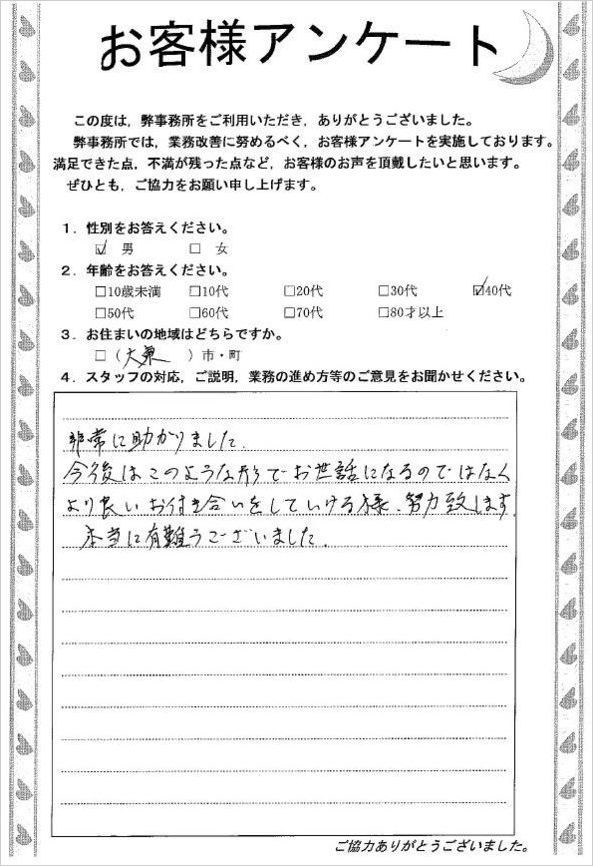 お客様アンケート
この度は，弊事務所をご利用いただき，ありがとうございました。
弊事務所では，業務改善に努めるべく，お客様アンケートを実施しております。
満足できた点，不満が残った点など，お客様のお声を頂戴したいと思います。
ぜひとも，ご協力をお願い申し上げます。
1．性別をお答えください。
☑ 男 □ 女
2．年齢をお答えください。
□10歳未満 □10代 □20代 □30代 ☑40代
□50代 □60代 □70代 □80才以上
3．お住まいの地域はどちらですか。
□（大東 ）市・町
4．スタッフの対応，ご説明，業務の進め方等のご意見をお聞かせください。
非常に助かりました。
今後はこのような形でお世話になるのではなく
より良いお付き合いをしていける様、努力致します。
本当に有難うございました。
ご協力ありがとうございました。